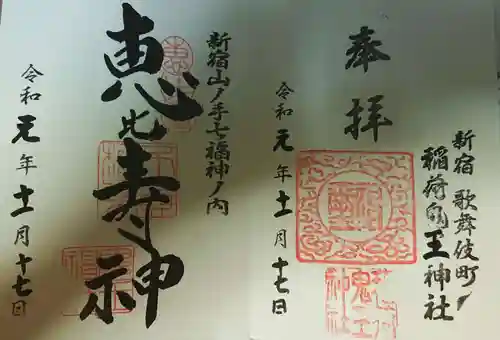 奉拝
新宿 歌舞伎町ノ
稲荷鬼王神社
令和元年十一月十七日
新宿山ノ手七福神ノ内
恵比寿神
令和元年十一月十七日